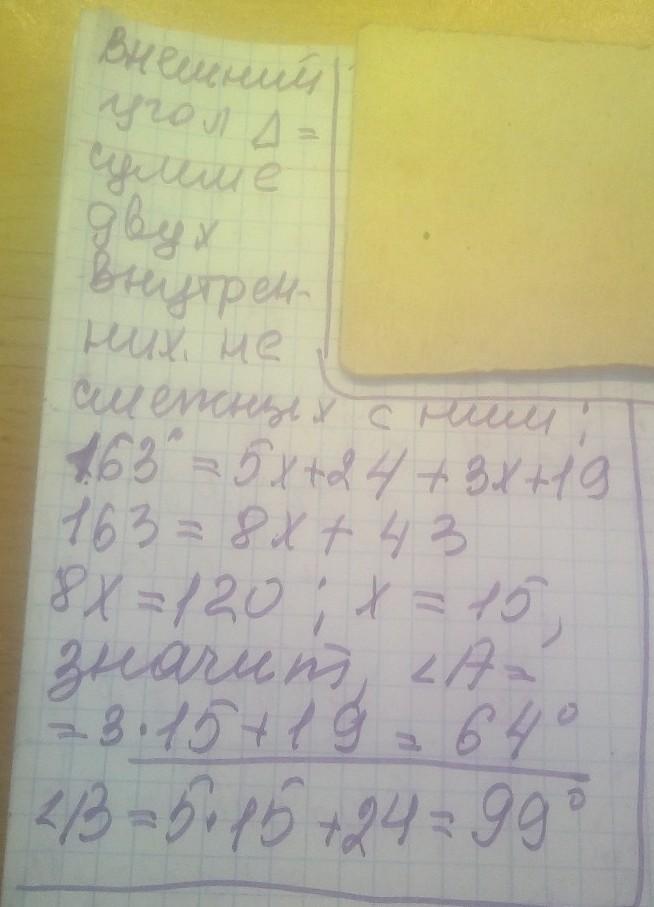 Внешний
угол Δ =
сумме
двух
внутрен-
них. не
смежных с ним;
163° = 5x+24+3x+19
163 = 8x + 43
8x = 120 ; x = 15,
значит, <A=
= 3·15+19 = 64°
<B = 5·15+24 = 99°